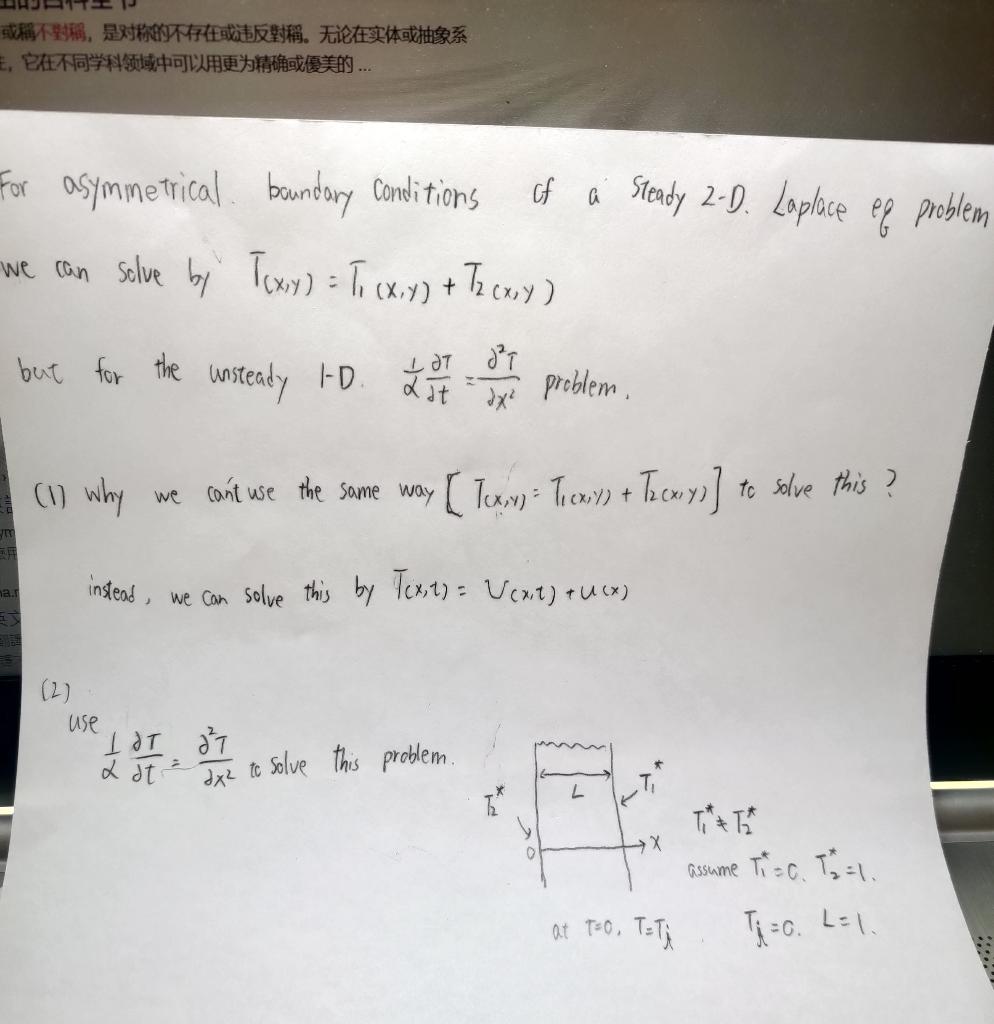 或稱不對稱，是对称的不存在或违反對稱。无论在实体或抽象系
，它在不同学科领域中可以用更为精确或優美的 ...
For asymmetrical. boundary conditions of a steady 2-D. Laplace eq problem
we can solve by T(x,y) = T₁(x,y) + T₂(x,y)
but for the unsteady 1-D. 1/α ∂T/∂t = ∂²T/∂x² problem.
(1) why we can't use the same way [T(x,y) = T₁(x,y) + T₂(x,y)] to solve this?
instead, we can solve this by T(x,t) = V(x,t) + U(x)
(2)
use
1/α ∂T/∂t = ∂²T/∂x² to solve this problem.
L
T₁*
T₂*
0
x
T₁* ≠ T₂*
assume T₁* = 0. T₂* = 1.
at T=0, T=Tᵢ. Tᵢ=0. L=1.